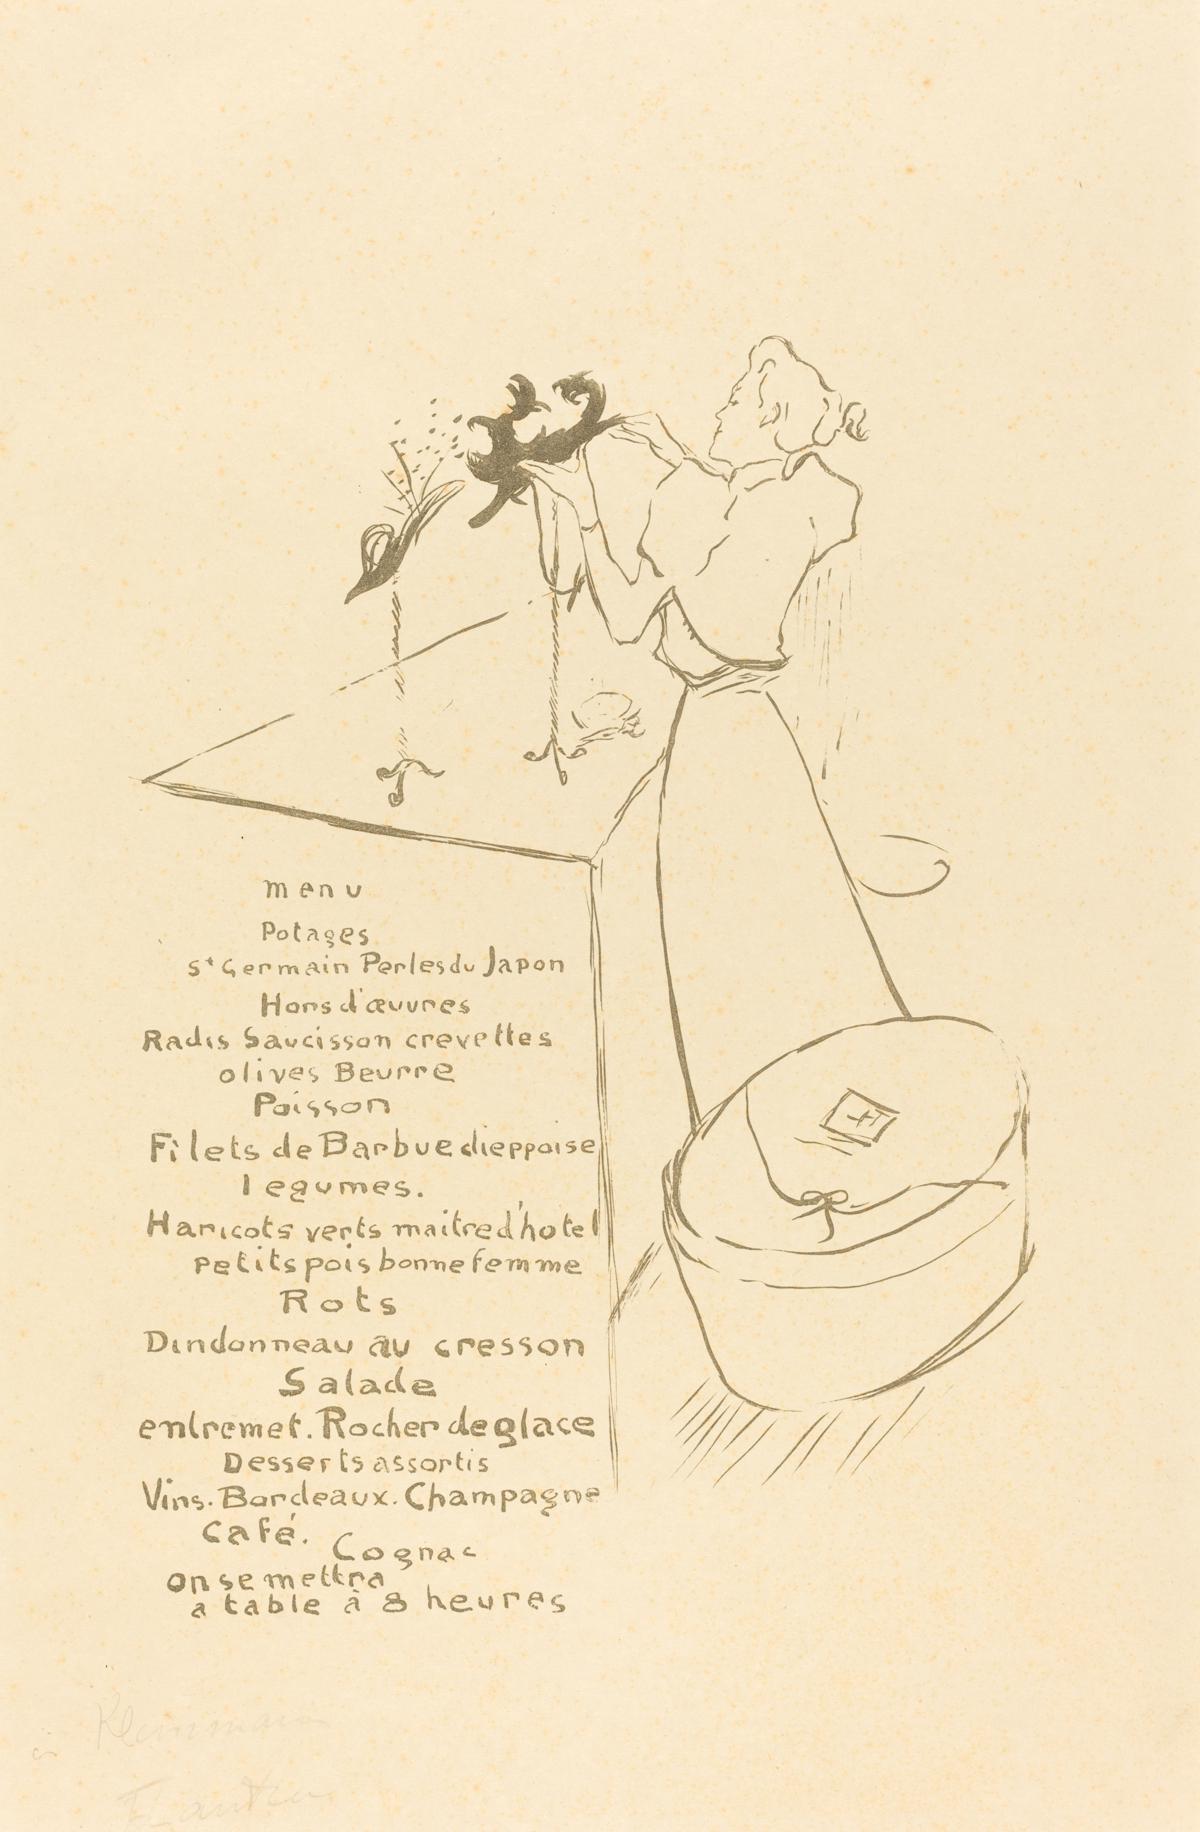 menu
Potages
St Germain Perles du Japon
Hors d'œuvres
Radis Saucisson crevettes
olives Beurre
Poisson
Filets de Barbue dieppoise
legumes.
Haricots verts maitre d'hotel
petits pois bonne femme
Rots
Dindonneau au cresson
Salade
entremet. Rocher de glace
Desserts assortis
Vins. Bordeaux. Champagne
Café.
Cognac
on se mettra
a table à 8 heures